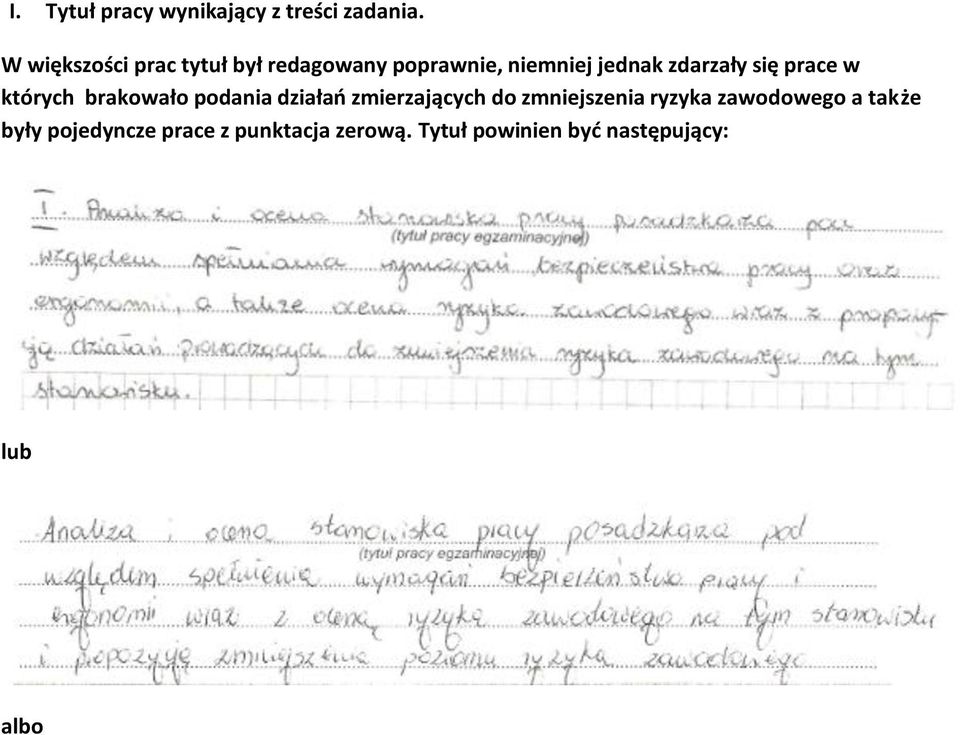 I. Tytuł pracy wynikający z treści zadania.
W większości prac tytuł był redagowany poprawnie, niemniej jednak zdarzały się prace w
których brakowało podania działań zmierzających do zmniejszenia ryzyka zawodowego a także
były pojedyncze prace z punktacja zerową. Tytuł powinien być następujący:
I. Analiza i ocena stanowiska pracy posadzkarza pod
(tytuł pracy egzaminacyjnej)
względem spełniania wymagań bezpieczeństwa pracy oraz
ergonomii, a także ocena ryzyka zawodowego wraz z propozy-
ją działań prowadzących do zmniejszenia ryzyka zawodowego na tym
stanowisku.
lub
Analiza i ocena stanowiska pracy posadzkarza pod
(tytuł pracy egzaminacyjnej)
względem spełnienia wymagań bezpieczeństwa pracy i
ergonomii wraz z oceną ryzyka zawodowego na tym stanowisku
i propozycją zmniejszenia poziomu ryzyka zawodowego
albo